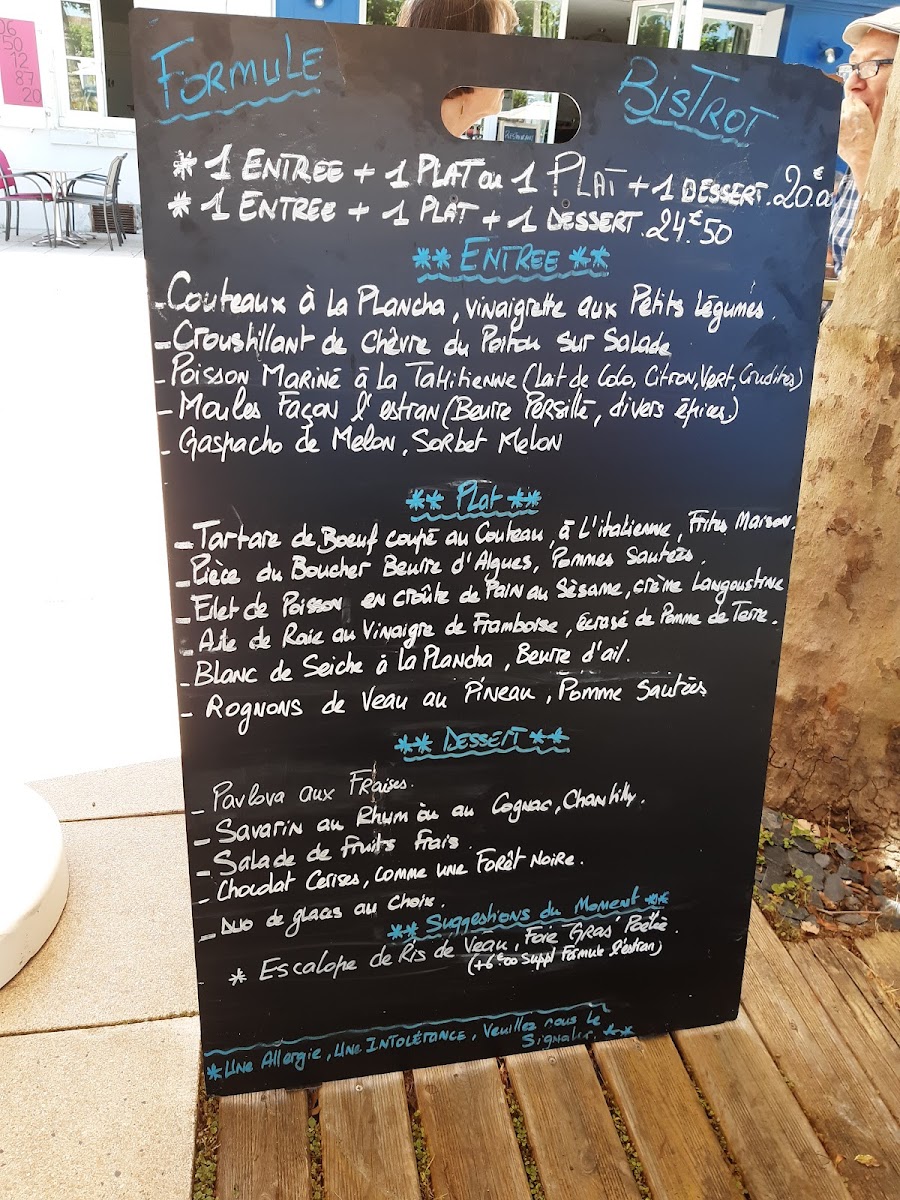 06
50
12
87
20
FORMULE BISTROT
* 1 ENTREE + 1 PLAT ou 1 PLAT + 1 DESSERT. 20.€0
* 1 ENTREE + 1 PLAT + 1 DESSERT. 24€.50
** ENTREE **
- Couteaux à la Plancha, vinaigrette aux Petits légumes.
- Croustillant de chèvre du Poitou sur Salade
- Poisson Mariné à la Tahitienne (Lait de Coco, Citron, Vert, Crudités)
- Moules Façon l'estran (Beurre Persillé, divers épices.)
- Gaspacho de Melon, Sorbet Melon
** Plat **
- Tartare de Boeuf coupé au Couteau, à l'italienne, Frites Maison.
- Pièce du Boucher Beurre d'Algues, Pommes Sautées.
- Filet de Poisson en croûte de Pain au Sésame, crème Langoustine
- Aile de Raie au Vinaigre de Framboise, écrasé de Pomme de Terre.
- Blanc de Seiche à la Plancha, Beurre d'ail.
- Rognons de Veau au Pineau, Pomme Sautées
** DESSERT **
- Pavlova aux Fraises.
- Savarin au Rhum ou au Cognac, Chantilly.
- Salade de fruits frais.
- Chocolat Cerises, comme une Forêt Noire.
- Duo de glaces au Choix.
** Suggestions du Moment **
* Escalope de Ris de Veau, Foie Gras Poêlé.
(+6€00 Suppl Formule l'estran)
* Une Allergie, Une INTOLÉRANCE, Veuillez nous le
Signaler. **